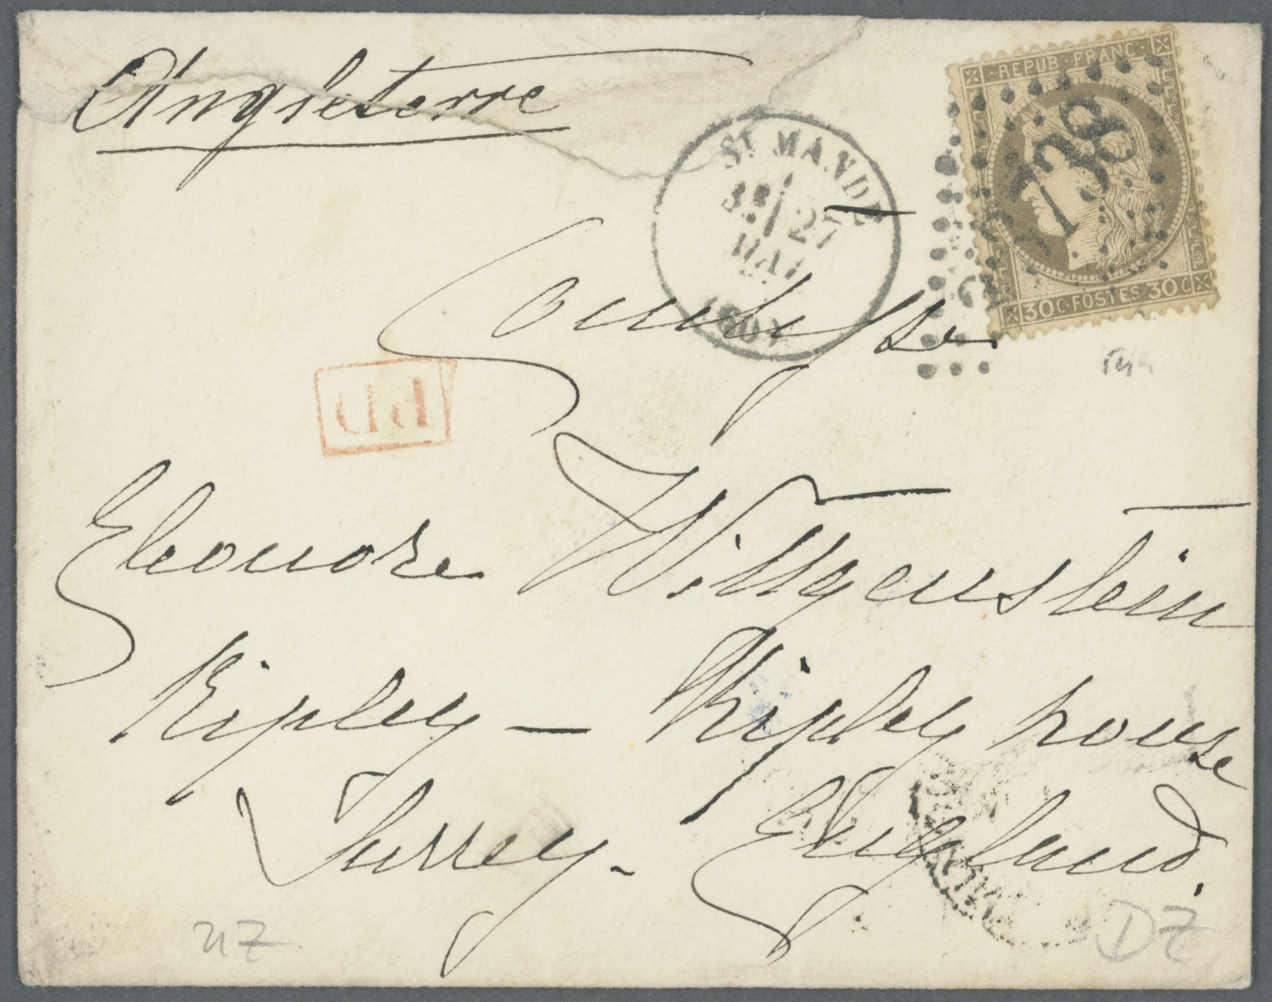 Angleterre
REPUB. FRANC.
3738
30 C. POSTES 30 C.
ST MANDÉ
3E 27
MAI
(60)
Comtesse
PD
Eleonore Wittgenstein
Ripley — Ripley house
Surrey. England.
nz
DZ